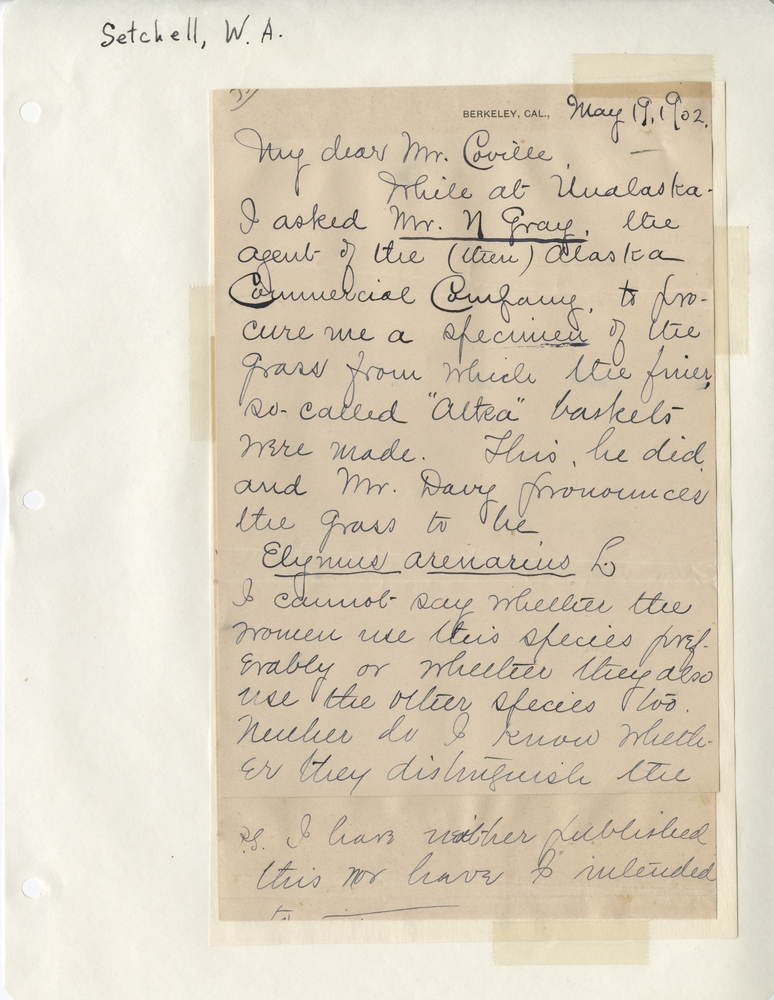 Setchell, W. A.
BERKELEY, CAL., May 19, 1902.
My dear Mr. Coville,
While at Unalaska
I asked Mr. N Gray, the
agent of the (then) Alaska
Commercial Company, to pro-
cure me a specimen of the
grass from which the finer,
so-called "Attea" baskets
were made. This, he did
and Mr. Davy pronounces
the grass to be
Elymus arenarius L.
I cannot say whether the
women use this species pref-
erably or whether they also
use the other species too.
Neither do I know wheth-
er they distinguish the
P.S. I have neither published
this nor have I intended
to